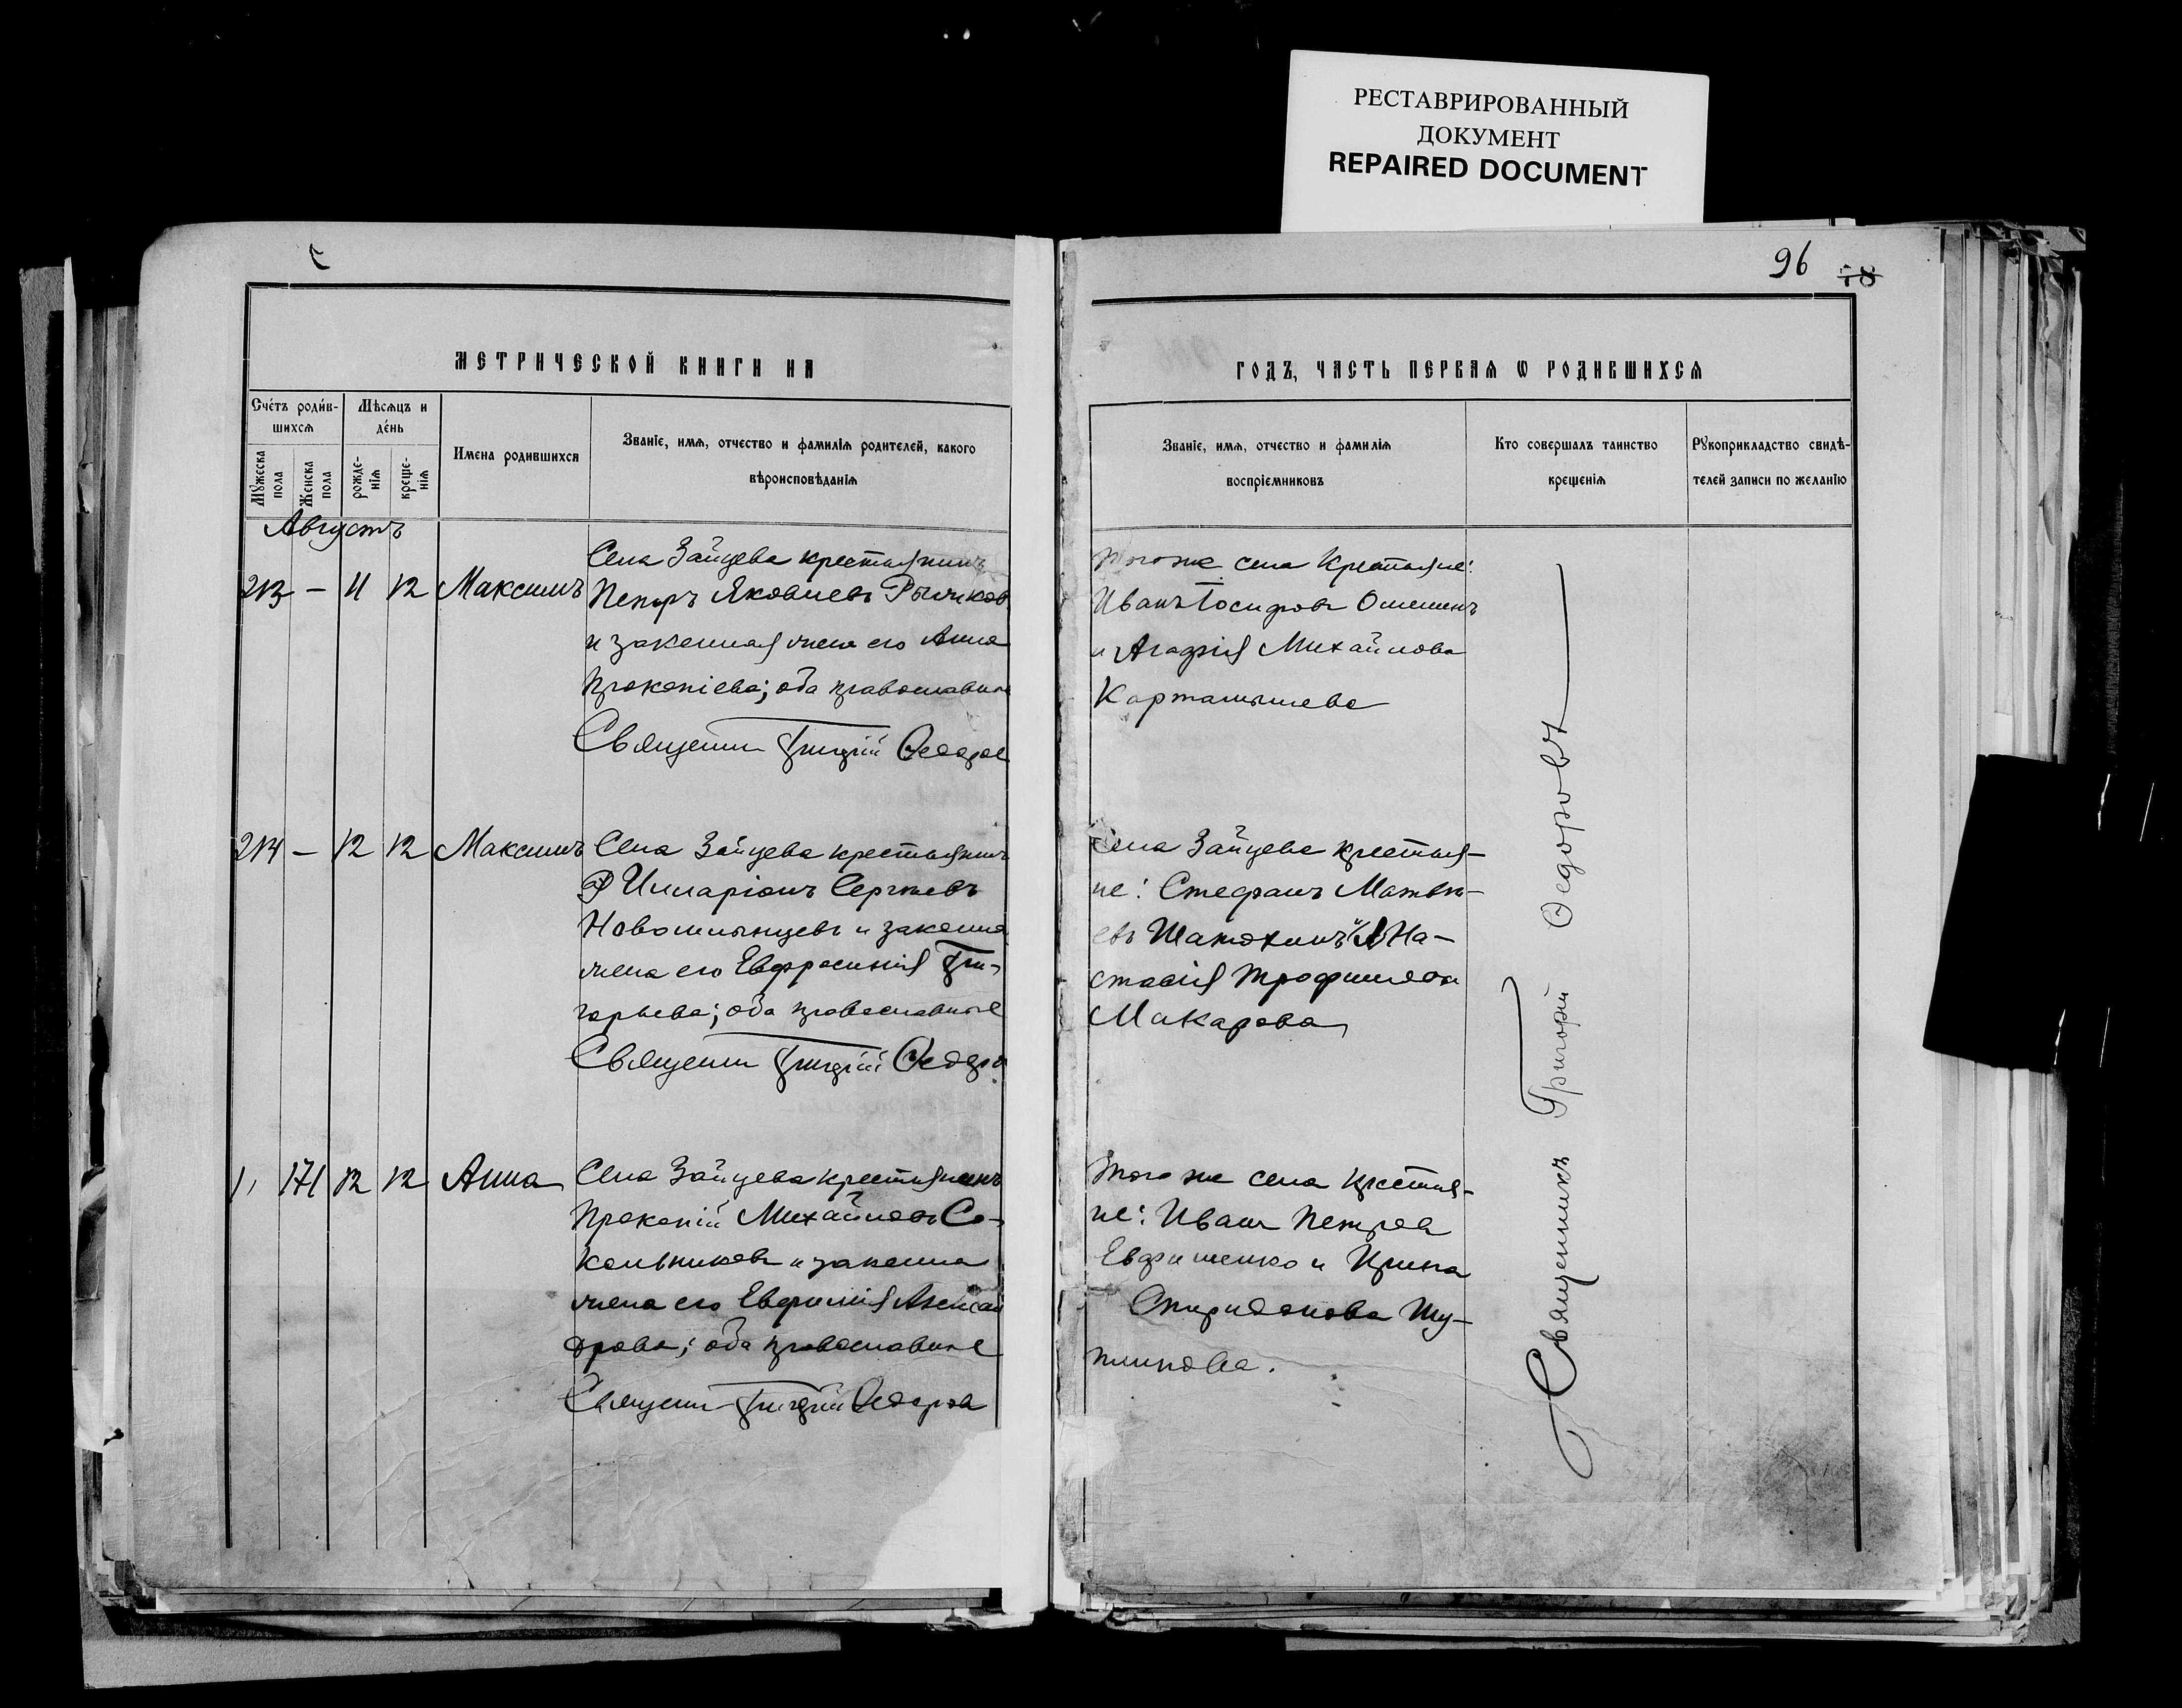 РЕСТАВРИРОВАННЫЙ
ДОКУМЕНТ
REPAIRED DOCUMENT
96 78
МЕТРИЧЕСКОЙ КНИГИ НА
ГОДЪ, ЧАСТЬ ПЕРВАѦ Ѡ РОДИВШИХСѦ
Счётъ роди́в-
шихсѧ
Мѣсѧцъ и
де́нь
Мꙋжеска
пола
Женска
пола
рожде-
нїѧ
креще-
нїѧ
Имена родившихсѧ
Званїе, имѧ, отчество и фамилїѧ родителей, какого
вѣроисповѣданїѧ
Званїе, имѧ, отчество и фамилїѧ
воспрїемниковъ
Кто совершалъ таинство
крещенїѧ
Рꙋкоприкладство свидѣ-
телей записи по желанїю
Августъ
213 – 11 12 Максимъ
Села Зайцева крестьянинъ
Петръ Яковлевъ Рычков
и законная жена его Анна
Прокопіева; оба православные
Священ Григорій Ѳедоров
того же села крестьяне:
Иванъ Іосифовъ
и Агафія Михайлова
214 – 12 12 Максимъ
Села Зайцева крестьянинъ
Илларіонъ Сергѣевъ
Новомлынцевъ и законна
жена его Евфросинія Гри-
горьева; оба православные
Священ Григорій Ѳедоро
Села Зайцева крестья-
не: Стефанъ Матвѣ-
евъ Шатохинъ и Ана-
стасія Трофимова
Макарова
171 12 12 Анна
Села Зайцева крестьянинъ
Прокопій Михайловъ Со-
кольниковъ и законна
жена его Евфимія Алексан
дрова; оба православные
Священ Григорій Ѳедоров
того же села крестья-
не: Иванъ Петровъ
Евфименко и Ирина
Спиридонова Шу-
Священникъ Григорій Ѳедоровъ